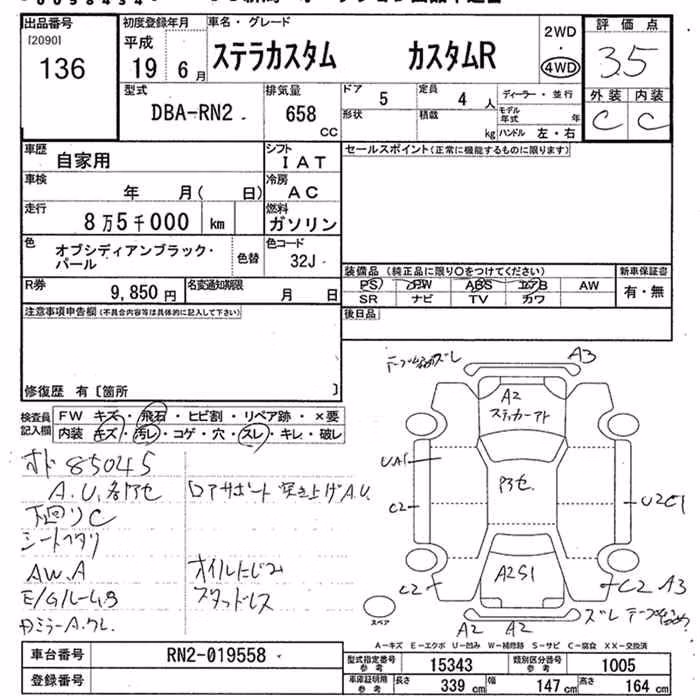 出品番号
[2090]
136
初度登録年月
平成
19 6 月
車名・グレード
ステラカスタム カスタムR
2WD
・
4WD
評価点
3.5
外装 内装
C C
型式
DBA-RN2
排気量
658
CC
ドア
5
定員
4 人
ディーラー・並行
モデル年式 年
形状
積載
kg
ハンドル 左・右
車歴
自家用
シフト
IAT
セールスポイント(正常に機能するものに限ります)
車検
年 月( 日)
冷房
AC
走行
8万5千000 km
燃料
ガソリン
色
オブシディアンブラック・
パール
色替
色コード
32J
装備品 (純正品に限り○をつけてください)
新車保証書
PS PW ABS エアB AW
有・無
SR ナビ TV カワ
R券
9,850 円
名変通知期限
月 日
後日品
注意事項申告欄(不具合内容等は具体的に記入して下さい)
修復歴 有〔箇所 〕
検査員
記入欄
FW キズ・飛石・ヒビ割・リペア跡・×要
内装 キズ・汚レ・コゲ・穴・スレ・キレ・破レ
85045
A.U.各アセ
ロアサポート突き上げA.U.
下回りC
シートヘタリ
AW.A
オイルにじみ
スタッドレス
E/Gルームサ
A3
A2
ステッカーアト
UA1
アセ
C2
U2C1
A2S1
C2
C2 A3
A2 A2
スペア
A-キズ E-エクボ U-凹み W-補修跡 S-サビ C-腐食 XX-交換済
車台番号
RN2-019558
型式指定番号
参考
15343
類別区分番号
参考
1005
登録番号
車庫証明用
参考
長さ
339 cm
幅
147 cm
高さ
164 cm